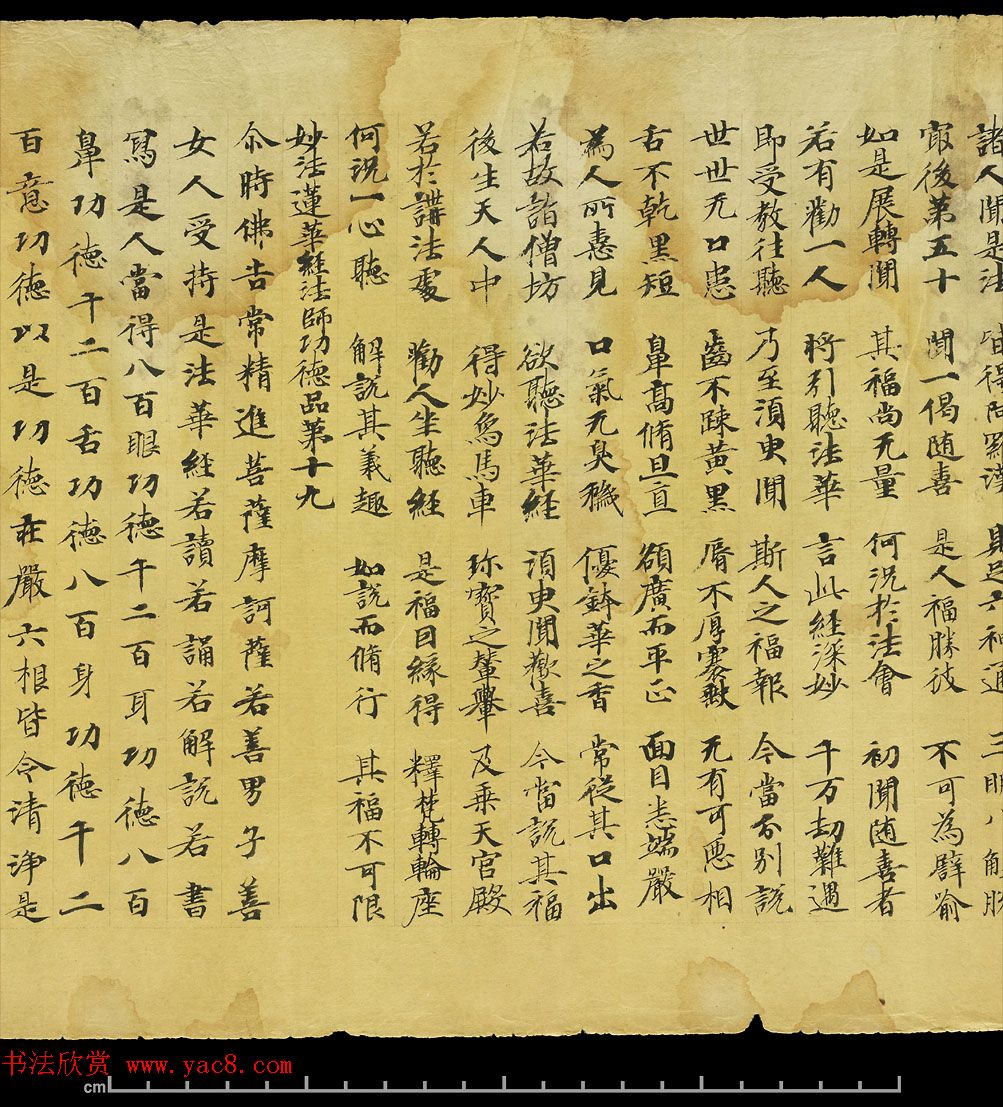 諸人聞是法 皆得阿羅漢 具足六神通 三明八解脱
㝡後第五十 聞一偈随喜 是人福勝彼 不可為譬喻
如是展轉聞 其福尚无量 何況於法會 初聞随喜者
若有勸一人 将引聽法華 言此經深妙 千万劫難遇
即受教往聽 乃至須臾聞 斯人之福報 今當分別說
世世无口患 齒不踈黃黑 脣不厚褰缺 无有可惡相
舌不乾黑短 鼻高脩且直 額廣而平正 面目悉端嚴
為人所憙見 口氣无臭穢 優鉢華之香 常從其口出
若故詣僧坊 欲聽法華經 須臾聞歡喜 今當說其福
後生天人中 得妙烏馬車 珎寶之輦轝 及乗天宫殿
若於講法處 勸人坐聽経 是福因緣得 釋梵轉輪座
何況一心聽 解說其義趣 如說而脩行 其福不可限
妙法蓮華経法師功德品第十九
尒時佛告常精進菩薩摩訶薩若善男子善
女人受持是法華経若讀若誦若解説若書
寫是人當得八百眼功德千二百耳功德八百
鼻功德千二百舌功德八百身功德千二
百意功德以是功德莊嚴六根皆令清淨是
书法欣赏 www.yac8.com
cm